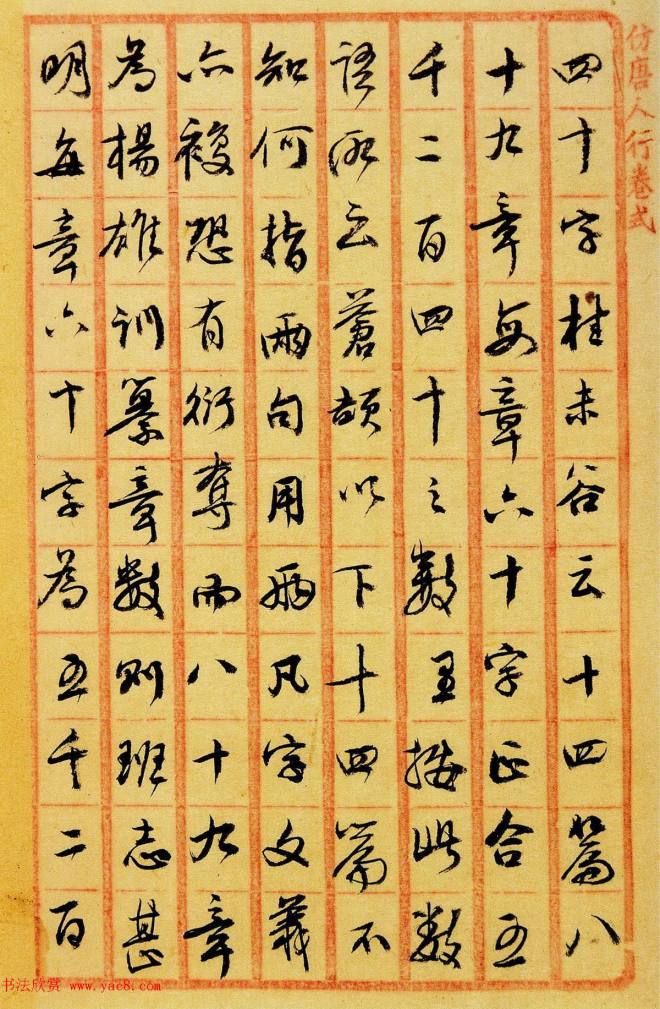 仿唐人行卷式
四十字桂未谷云十四篇八
十九章每章六十字正合五
千二百四十之數據此數
語云蒼頡以下十四篇不
知何指兩句用兩凡字文義
亦複恐有衍奪而八十九章
為楊雄訓纂章數則班志甚
明每章六十字為五千二百
书法欣赏 www.yac8.com